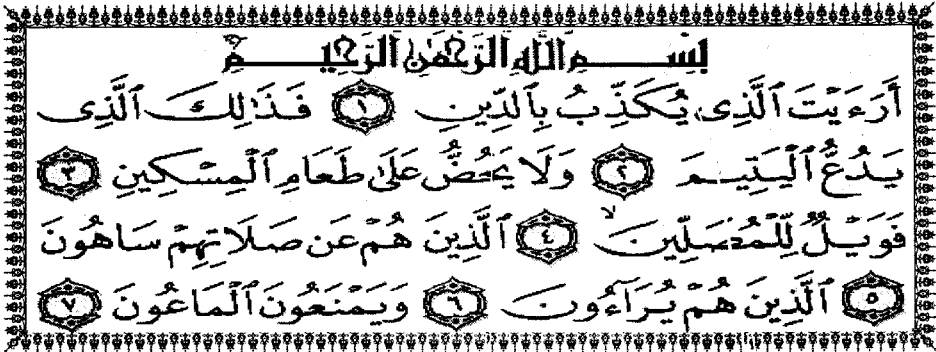 بِسْمِ اللَّهِ الرَّحْمَٰنِ الرَّحِيمِ
أَرَءَيْتَ ٱلَّذِى يُكَذِّبُ بِٱلدِّينِ ١ فَذَٰلِكَ ٱلَّذِى
يَدُعُّ ٱلْيَتِيمَ ٢ وَلَا يَحُضُّ عَلَىٰ طَعَامِ ٱلْمِسْكِينِ ٣
فَوَيْلٌ لِّلْمُصَلِّينَ ۙ ٤ ٱلَّذِينَ هُمْ عَن صَلَاتِهِمْ سَاهُونَ
٥ ٱلَّذِينَ هُمْ يُرَآءُونَ ٦ وَيَمْنَعُونَ ٱلْمَاعُونَ ٧